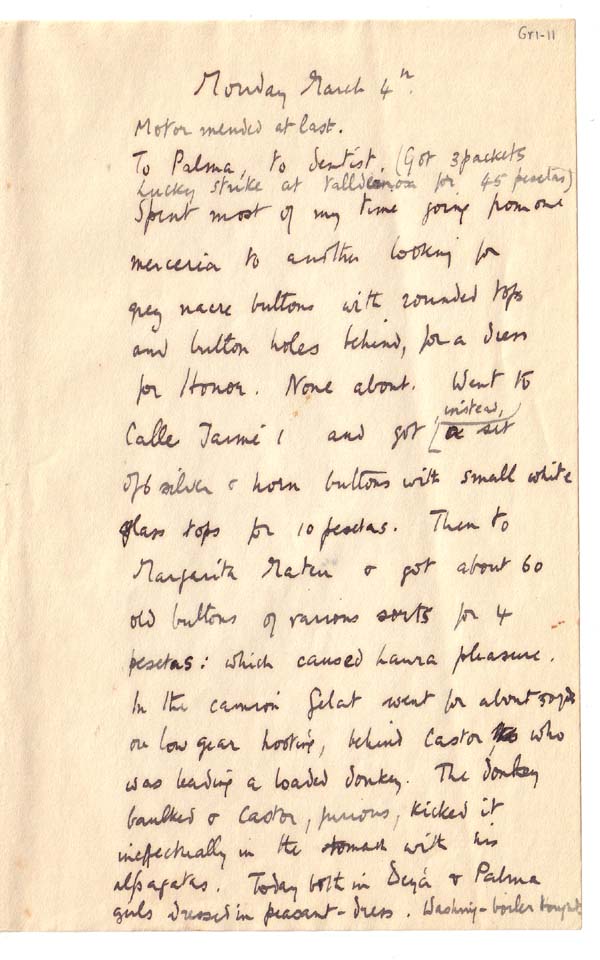 Gr1-11
Monday March 4th.
Motor mended at last.
To Palma, to dentist. (Got 3 packets
Lucky Strike at Valldemosa for 45 pesetas)
Spent most of my time going from one
merceria to another looking for
grey nacre buttons with rounded tops
and button holes behind, for a dress
for Honor. None about. Went to
Calle Jaime 1 and got (instead,) a set
of 6 silver & horn buttons with small white
glass tops for 10 pesetas. Then to
Margarita Mateu & got about 60
old buttons of various sorts for 4
pesetas: which caused Laura pleasure.
In the camion Gelat went for about 50 yds
on low gear hooting, behind Castor who
was leading a loaded donkey. The donkey
baulked & Castor, furious, kicked it
ineffectually in the stomach with his
alpagatas. Today both in Deyá & Palma
girls dressed in peasant-dress. Washing-boiler bought